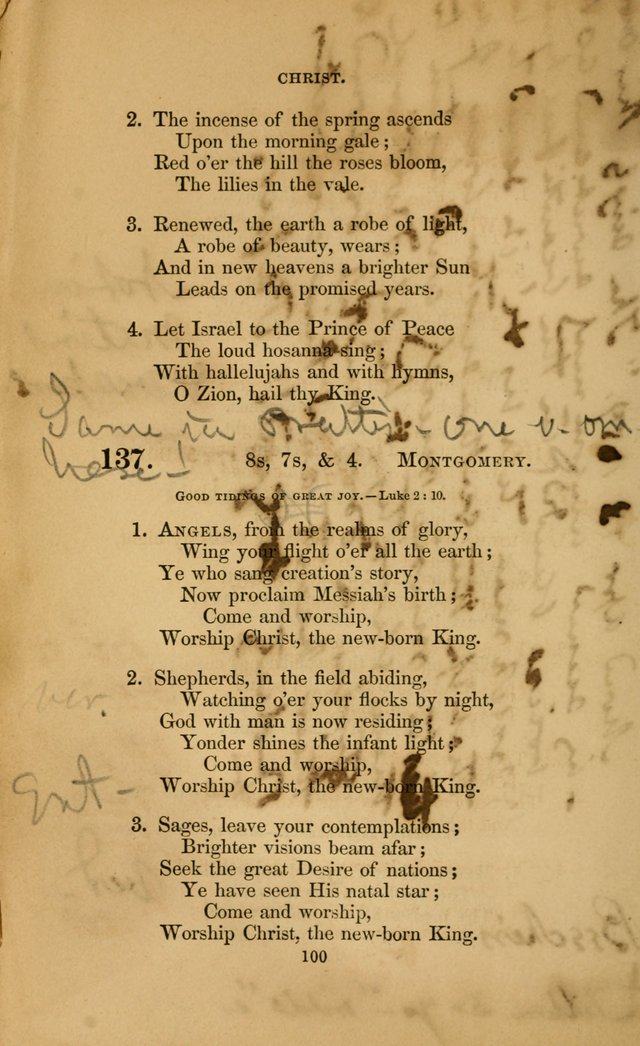 CHRIST.
2. The incense of the spring ascends
Upon the morning gale;
Red o'er the hill the roses bloom,
The lilies in the vale.
3. Renewed, the earth a robe of light,
A robe of beauty, wears;
And in new heavens a brighter Sun
Leads on the promised years.
4. Let Israel to the Prince of Peace
The loud hosanna sing;
With hallelujahs and with hymns,
O Zion, hail thy King.
Same in - one v. om
137. 8s, 7s, & 4. MONTGOMERY.
GOOD TIDINGS OF GREAT JOY.—Luke 2 : 10.
1. ANGELS, from the realms of glory,
Wing your flight o'er all the earth;
Ye who sang creation's story,
Now proclaim Messiah's birth;
Come and worship,
Worship Christ, the new-born King.
2. Shepherds, in the field abiding,
Watching o'er your flocks by night,
God with man is now residing;
Yonder shines the infant light;
Come and worship,
Worship Christ, the new-born King.
3. Sages, leave your contemplations;
Brighter visions beam afar;
Seek the great Desire of nations;
Ye have seen His natal star;
Come and worship,
Worship Christ, the new-born King.
100